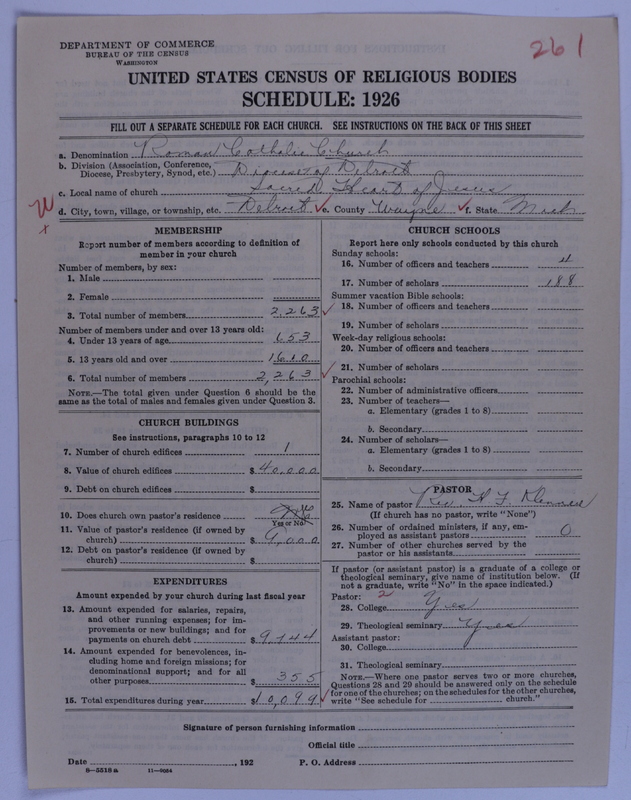 DEPARTMENT OF COMMERCE
BUREAU OF THE CENSUS
WASHINGTON
261
UNITED STATES CENSUS OF RELIGIOUS BODIES
SCHEDULE: 1926
FILL OUT A SEPARATE SCHEDULE FOR EACH CHURCH. SEE INSTRUCTIONS ON THE BACK OF THIS SHEET
a. Denomination Roman Catholic Church
b. Division (Association, Conference, Diocese, Presbytery, Synod, etc.) Diocese of Detroit
c. Local name of church Sacred Heart of Jesus
d. City, town, village, or township, etc. Detroit e. County Wayne f. State Mich
MEMBERSHIP
Report number of members according to definition of
member in your church
Number of members, by sex:
1. Male
2. Female
3. Total number of members 2,263
Number of members under and over 13 years old:
4. Under 13 years of age 653
5. 13 years old and over 1610
6. Total number of members 2,263
NOTE.—The total given under Question 6 should be
same as the total of males and females given under Question 3.
CHURCH BUILDINGS
See instructions, paragraphs 10 to 12
7. Number of church edifices 1
8. Value of church edifices $ 40,000
9. Debt on church edifices $
10. Does church own pastor's residence?
Yes or No
11. Value of pastor's residence (if owned by
church) $ 9,000
12. Debt on pastor's residence (if owned by
church) $
EXPENDITURES
Amount expended by your church during last fiscal year
13. Amount expended for salaries, repairs,
and other running expenses; for im-
provements or new buildings; and for
payments on church debt $ 9744
14. Amount expended for benevolences, in-
cluding home and foreign missions; for
denominational support; and for all
other purposes $ 355
15. Total expenditures during year $ 10,099
CHURCH SCHOOLS
Report here only schools conducted by this church
Sunday schools:
16. Number of officers and teachers 4
17. Number of scholars 188
Summer vacation Bible schools:
18. Number of officers and teachers
19. Number of scholars
Week-day religious schools:
20. Number of officers and teachers
21. Number of scholars
Parochial schools:
22. Number of administrative officers
23. Number of teachers—
a. Elementary (grades 1 to 8)
b. Secondary
24. Number of scholars—
a. Elementary (grades 1 to 8)
b. Secondary
PASTOR
25. Name of pastor Rev. H. F.
(If church has no pastor, write "None")
26. Number of ordained ministers, if any, em-
ployed as assistant pastors 0
27. Number of other churches served by the
pastor or his assistants
If pastor (or assistant pastor) is a graduate of a college or
theological seminary, give name of institution below. (If
not a graduate, write "No" in the space indicated.)
Pastor: 2
28. College Yes
29. Theological seminary Yes
Assistant pastor:
30. College
31. Theological seminary
NOTE.—Where one pastor serves two or more churches,
Questions 28 and 29 should be answered only on the schedule
for one of the churches; on the schedules for the other churches,
write "See schedule for church."
Signature of person furnishing information
Official title
Date , 192 P. O. Address
8—5518a 11—9034